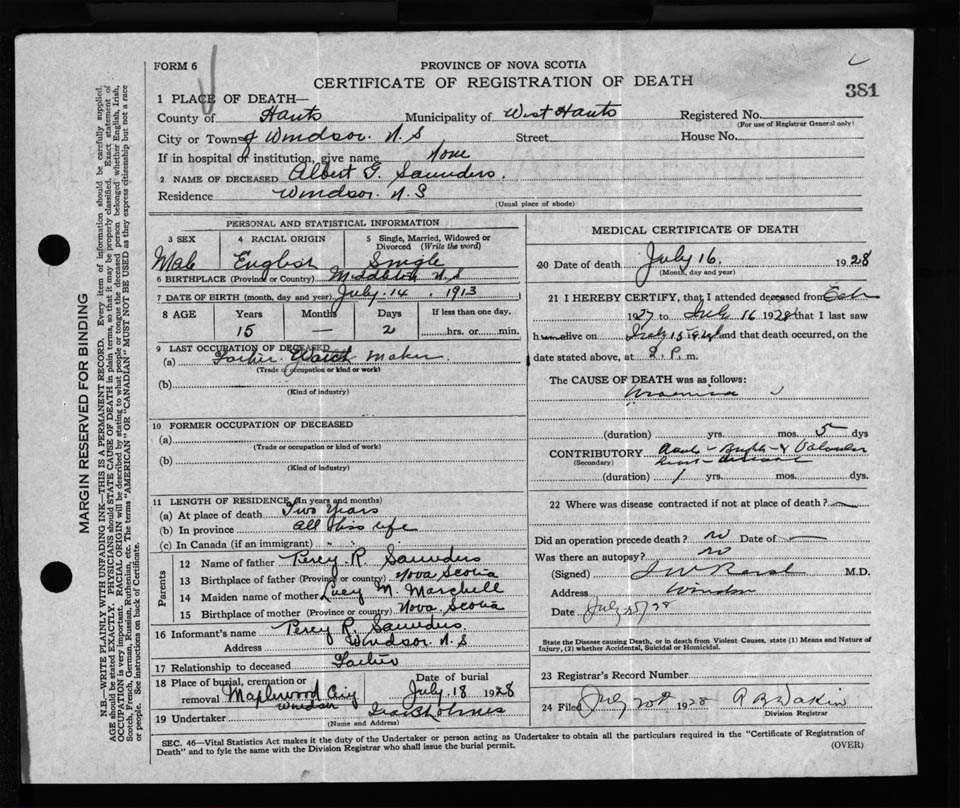 FORM 6
PROVINCE OF NOVA SCOTIA
CERTIFICATE OF REGISTRATION OF DEATH
381
1 PLACE OF DEATH—
County of Hants Municipality of West Hants Registered No.
(For use of Registrar General only)
City or Town of Windsor. N.S Street House No.
If in hospital or institution, give name None
2 NAME OF DECEASED Albert G. Saunders.
Residence Windsor N.S
(Usual place of abode)
PERSONAL AND STATISTICAL INFORMATION
3 SEX 4 RACIAL ORIGIN 5 Single, Married, Widowed or Divorced (Write the word)
Male English Single
6 BIRTHPLACE (Province or Country) Middleton N.S
7 DATE OF BIRTH (month, day and year) July. 14. 1913
8 AGE Years Months Days If less than one day,
15 — 2 hrs. or min.
9 LAST OCCUPATION OF DECEASED
(a) Father Watch maker
(Trade or occupation or kind or work)
(b)
(Kind of industry)
10 FORMER OCCUPATION OF DECEASED
(a)
(Trade or occupation or kind of work)
(b)
(Kind of industry)
11 LENGTH OF RESIDENCE (in years and months)
(a) At place of death Two Years
(b) In province all his life
(c) In Canada (if an immigrant) " " "
Parents
12 Name of father Percy R. Saunders
13 Birthplace of father (Province or country) Nova Scotia
14 Maiden name of mother Lucy M. Marshall
15 Birthplace of mother (Province or country) Nova Scotia
16 Informant's name Percy R. Saunders
Address Windsor N.S
17 Relationship to deceased Father
18 Place of burial, cremation or removal Maplewood Windsor
Date of burial July. 18 1928
19 Undertaker Holmes
(Name and Address)
MEDICAL CERTIFICATE OF DEATH
20 Date of death July 16. 1928
(Month, day and year)
21 I HEREBY CERTIFY, that I attended deceased from
1927 to July 16 1928 that I last saw
h alive on July 15 and that death occurred, on the
date stated above, at 2. P. m.
The CAUSE OF DEATH was as follows:
Uraemia
(duration) yrs. mos. 5 dys
CONTRIBUTORY
(Secondary) Heart disease
(duration) 1 yrs. mos. dys.
22 Where was disease contracted if not at place of death? —
Did an operation precede death? no Date of —
Was there an autopsy? no
(Signed) M.D.
Address Windsor
Date July 28
State the Disease causing Death, or in death from Violent Causes, state (1) Means and Nature of Injury, (2) whether Accidental, Suicidal or Homicidal.
23 Registrar's Record Number
24 Filed July 20th 1928
Division Registrar
SEC. 46—Vital Statistics Act makes it the duty of the Undertaker or person acting as Undertaker to obtain all the particulars required in the "Certificate of Registration of
Death" and to fyle the same with the Division Registrar who shall issue the burial permit.
(OVER)
MARGIN RESERVED FOR BINDING
N.B.—WRITE PLAINLY WITH UNFADING INK—THIS IS A PERMANENT RECORD. Every item of information should be carefully supplied.
AGE should be stated EXACTLY. PHYSICIANS should STATE CAUSE OF DEATH in plain terms, so that it may be properly classified. Exact statement of
OCCUPATION is very important. RACIAL ORIGIN will be described by stating to what people or tongue the deceased person belonged whether English, Irish,
Scotch, French, German, Russian, Ruthenian, etc. The terms "AMERICAN" OR "CANADIAN" MUST NOT BE USED as they express citizenship but not a race
or people. See instructions on back of Certificate.